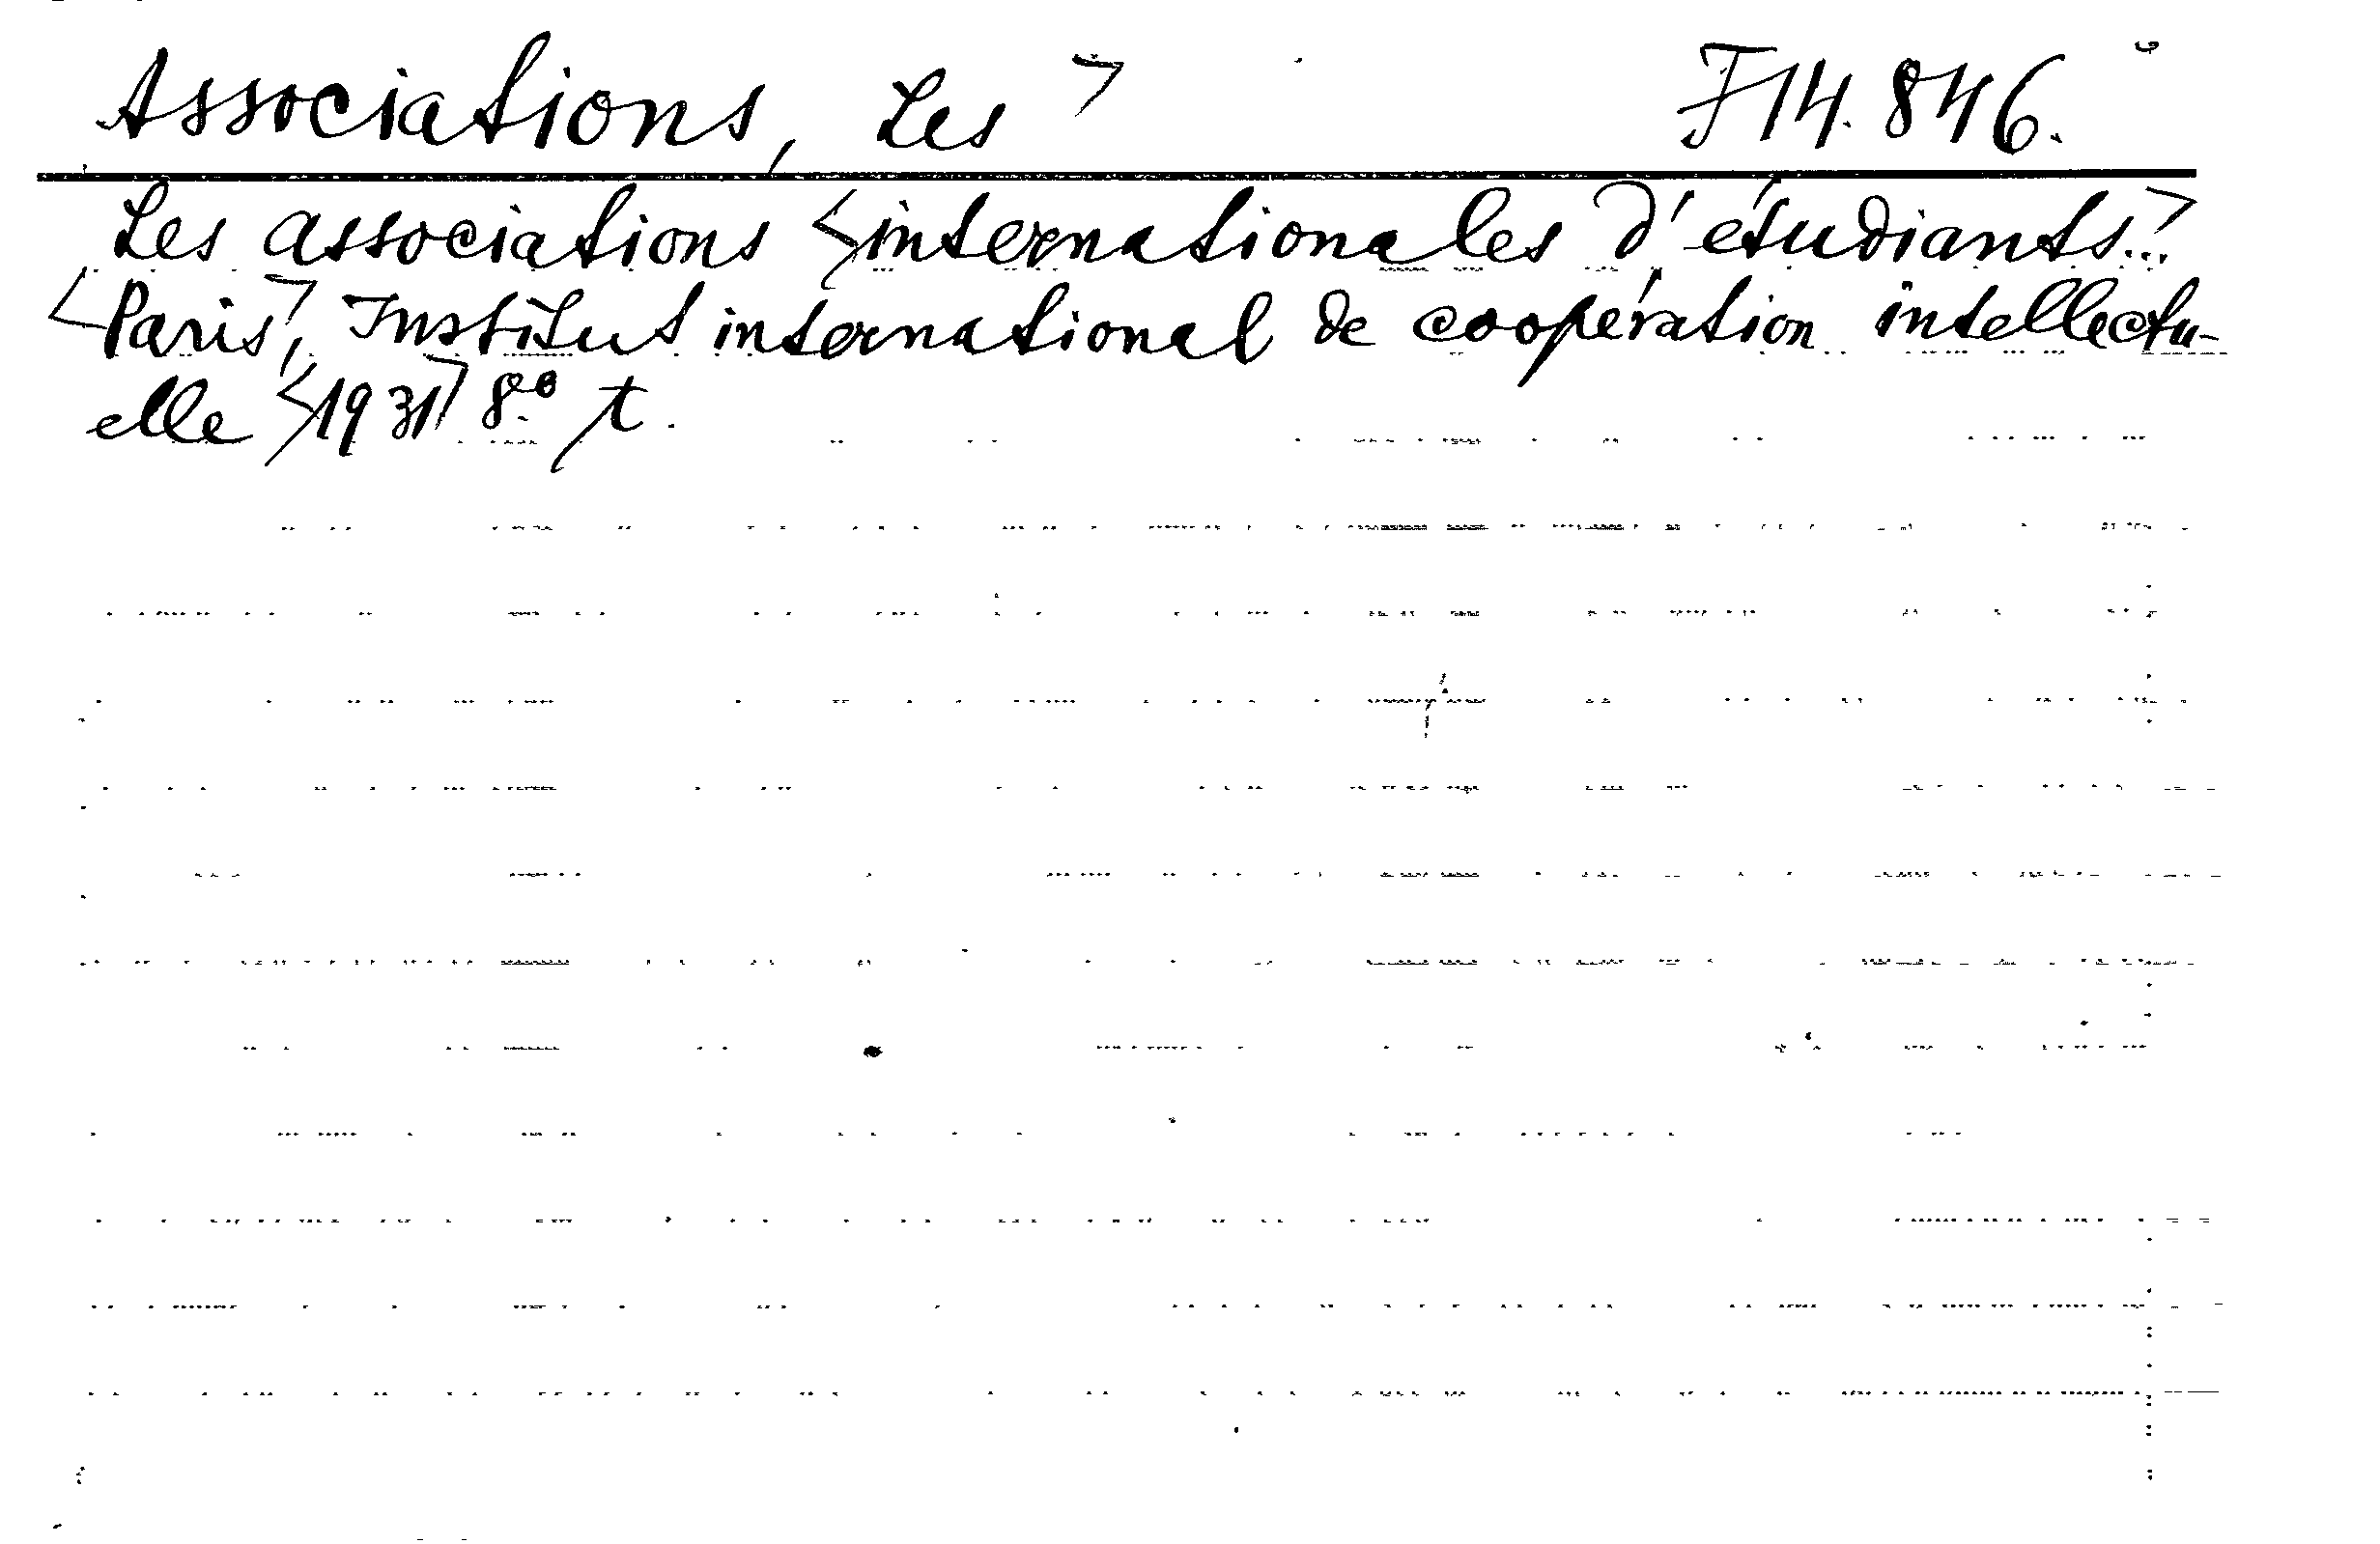 Associations, Les > F14.846.
Les associations <internationales d'étudiants...>
<Paris>, Institut international de coopération intellectu-
elle <1931> 8º t.